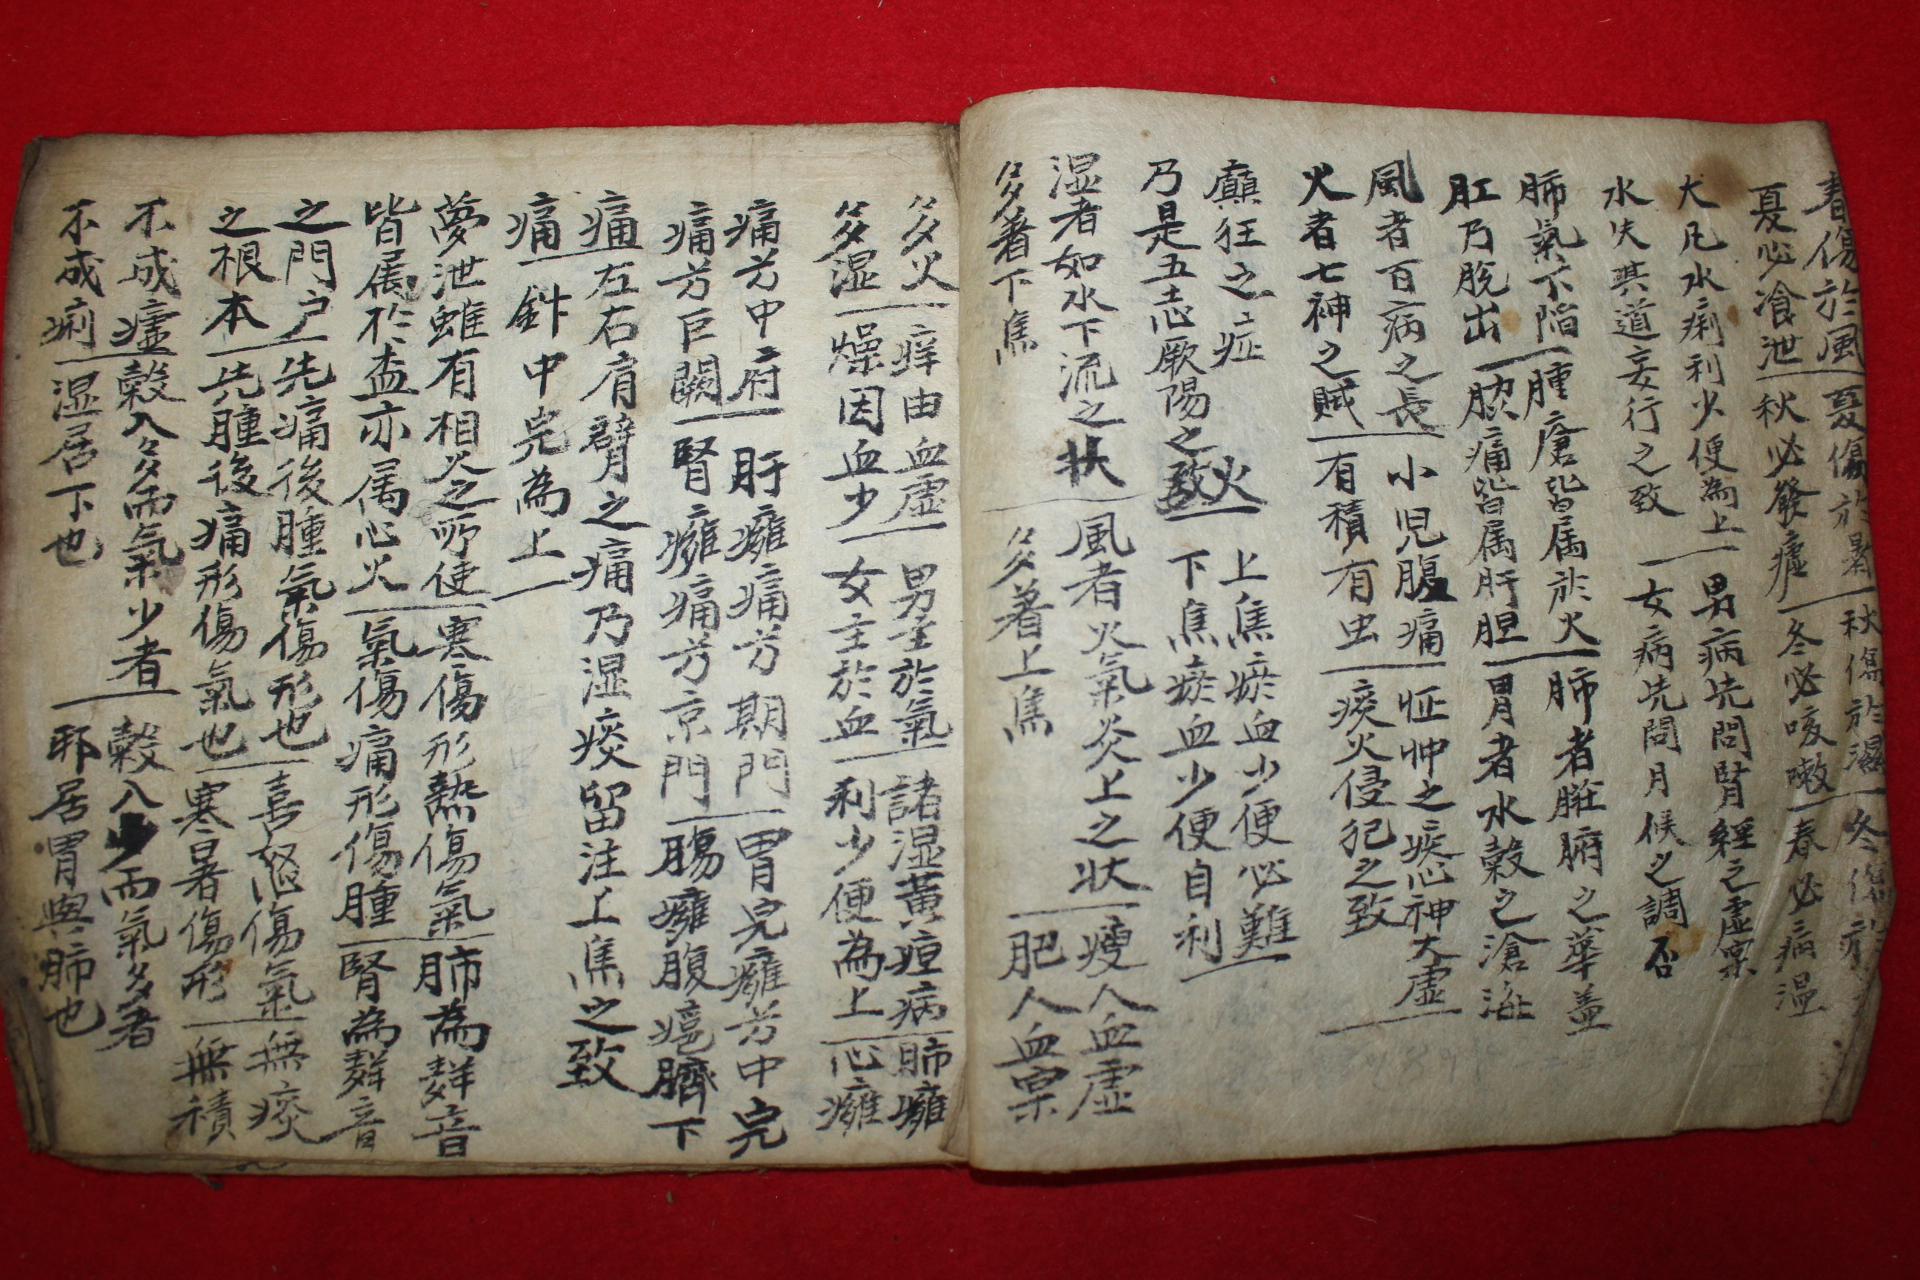 春傷於風 夏傷於暑 秋傷於濕 冬傷於
夏必飡泄 秋必發瘧 冬必咳嗽 春必病温
大凡水痢利少便為上 男病先問腎經之虛稟
水失其道妄行之致 女病先問月候之調否
肺氣下陷 腫瘡皆属於火 肺者臟腑之華盖
肛乃脫出 脇痛皆属肝胆 胃者水穀之滄海
風者百病之長 小児腹痛 怔忡之疾心神大虛
火者七神之賊 有積有虫 痰火侵犯之致
癲狂之症 火 上焦瘀血少便必難
乃是五志厥陽之致 下焦瘀血少便自利
湿者如水下流之状 風者火氣炎上之状 瘦人血虛
多著下焦 多著上焦 肥人血稟
多火 痒由血虛 男主於氣 諸湿黃疸病 肺癰
多湿 燥因血少 女主於血 利少便為上 心癰
痛方中府 肝癰痛方期門 胃完癰方中完
痛方巨闕 腎癰痛方京門 腸癰腹瘡臍下
痛 左右肩臂之痛乃湿痰留注上焦之致
痛 針中完為上
夢泄雖有相火之所使 寒傷形熱傷氣 肺為聲音
皆属於盃亦属心火 氣傷痛形傷腫 腎為聲音
之門户 先痛後腫氣傷形也 喜怒傷氣 無痰
之根本 先腫後痛形傷氣也 寒暑傷形 無積
不成瘧 穀入多而氣少者 穀入少而氣多者
不成痢 湿居下也 邪居胃與肺也